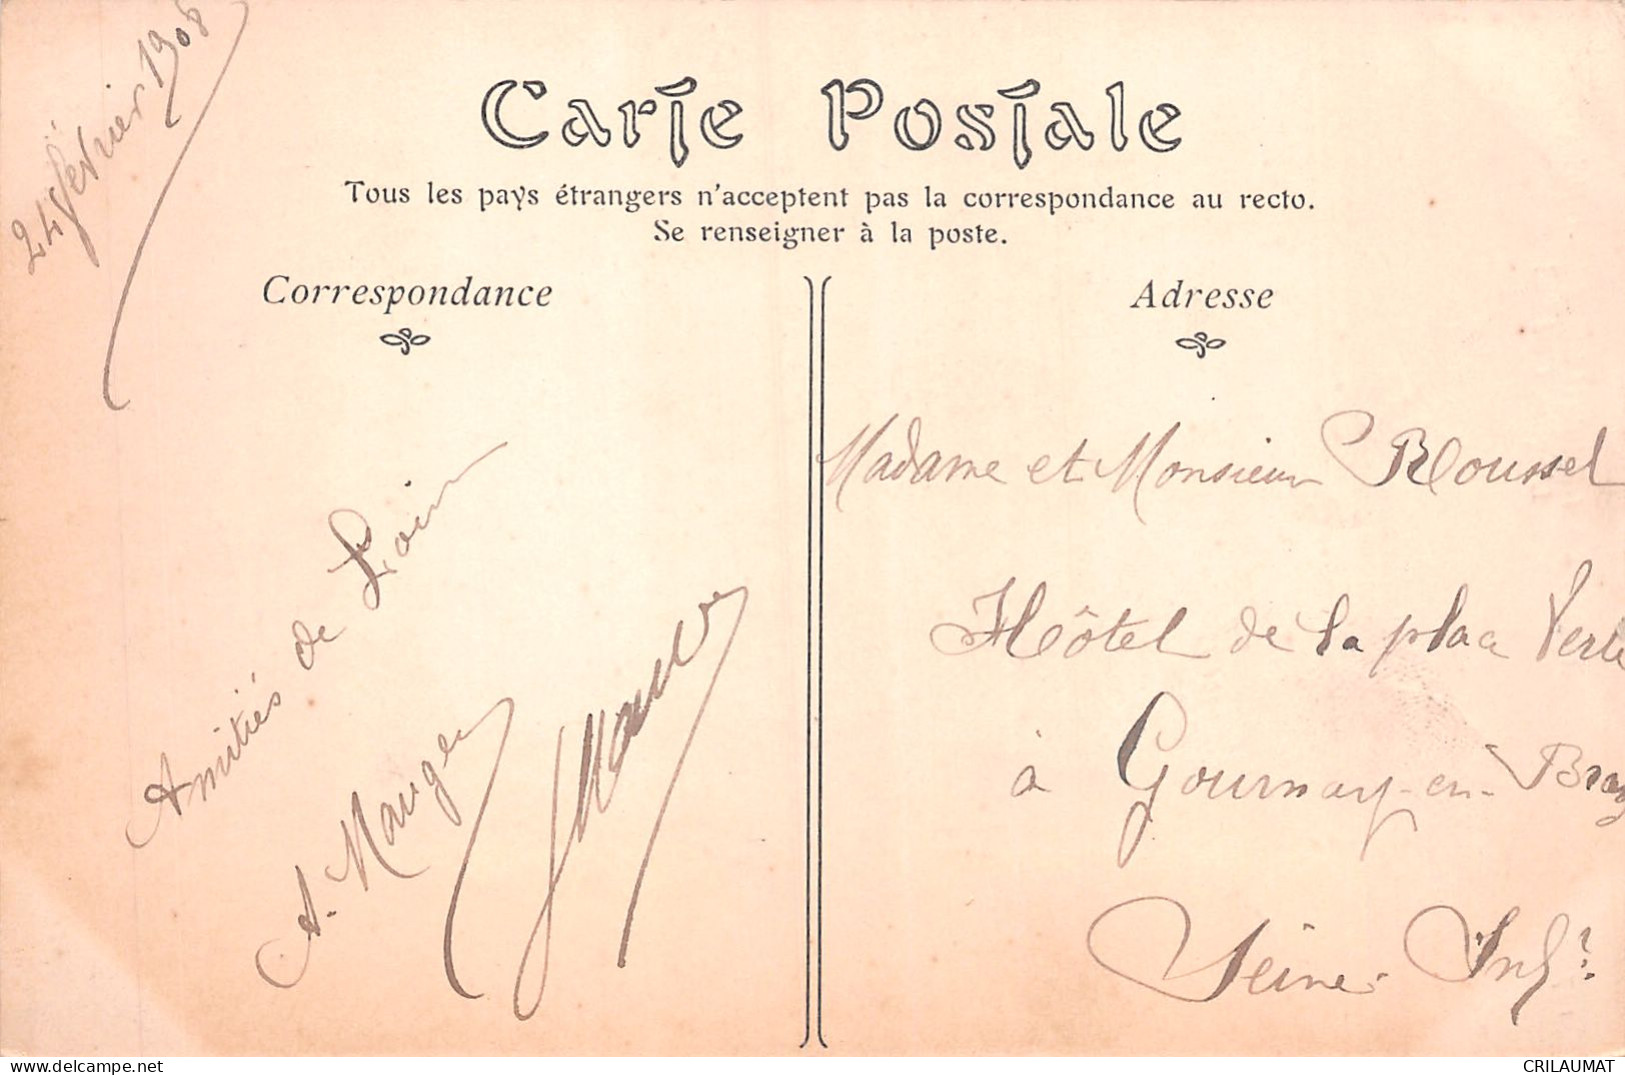 24 février 1908
Carte Postale
Tous les pays étrangers n'acceptent pas la correspondance au recto.
Se renseigner à la poste.
Correspondance
Adresse
Amitiés de Loin
A. Mauger
Madame et Monsieur Roussel
Hôtel de la place Verte
à Gournay-en-Bray
Seine Infre
www.delcampe.net
CRILAUMAT